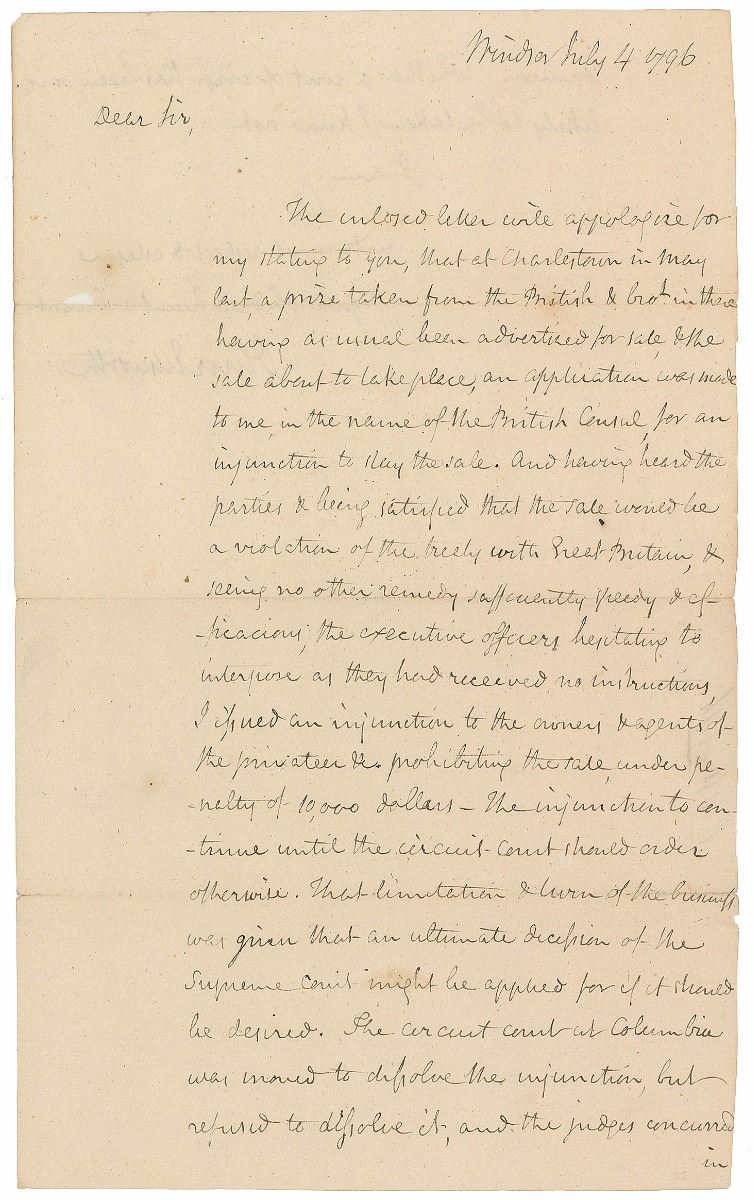 Windsor July 4 1796
Dear Sir,
The inlosed letter will appologize for
my stating to you, that at Charlestown in May
last, a prize taken from the British & brot. in there
having as usual been advertised for sale, & the
sale about to take place, an application was made
to me, in the name of the British Consul, for an
injunction to stay the sale. And having heard the
parties & being satisfied that the sale would be
a violation of the treety with Great Britain, &
seeing no other remedy sufficiently speedy & ef-
-ficacious, the executive officers hesitating to
interpose as they had received no instructions,
I issued an injunction to the owners & agents of
the privateer &c. prohibiting the sale, under pe-
-nalty of 10,000 dollars - The injunction to con-
-tinue until the circuit court should order
otherwise. That limitation & turn of the business
was given that an ultimate decission of the
Supreme Court might be applied for if it should
be desired. The circuit court at Columbia
was moved to dissolve the injunction, but
refused to dissolve it, and the judges concurred
in